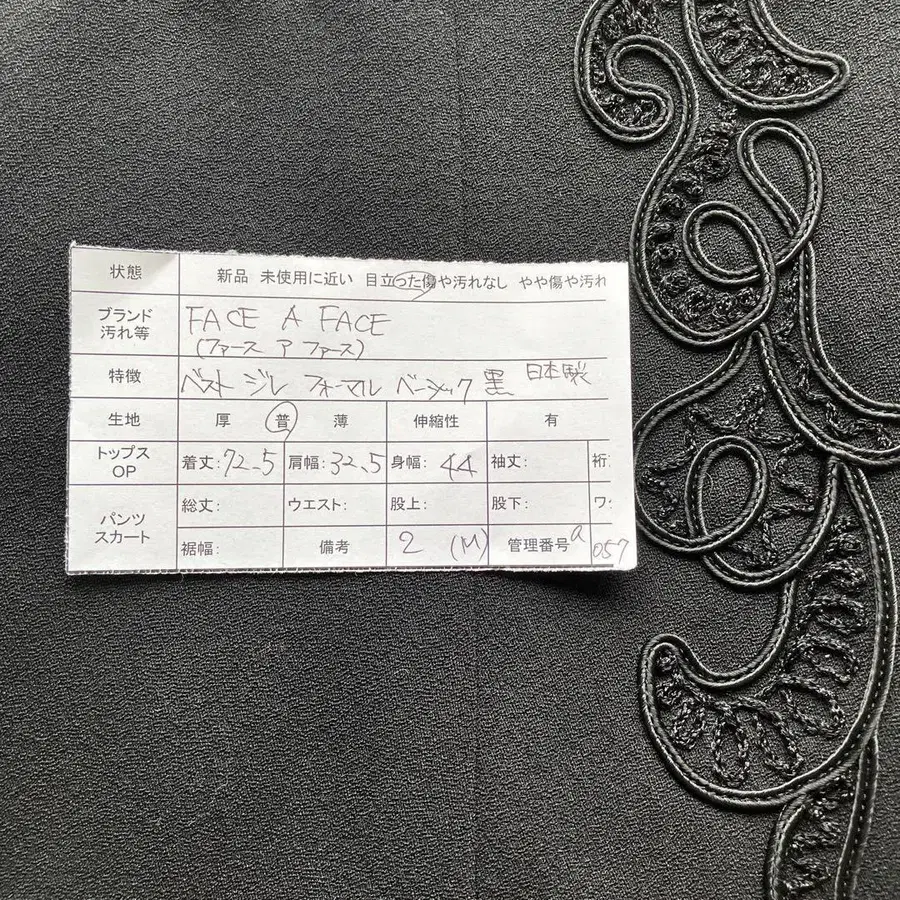 状態 新品 未使用に近い 目立った傷や汚れなし やや傷や汚れ
ブランド FACE A FACE
汚れ等 (ファース ア ファース)
特徴 ベスト ジレ フォーマル ベーシック 黒 日本製
生地 厚 普 薄 伸縮性 有
トップス
OP 着丈: 72.5 肩幅: 32.5 身幅: 44 袖丈: 裄
パンツ
スカート
総丈: ウエスト: 股上: 股下: ワ
裾幅: 備考 2 (M) 管理番号 a 057